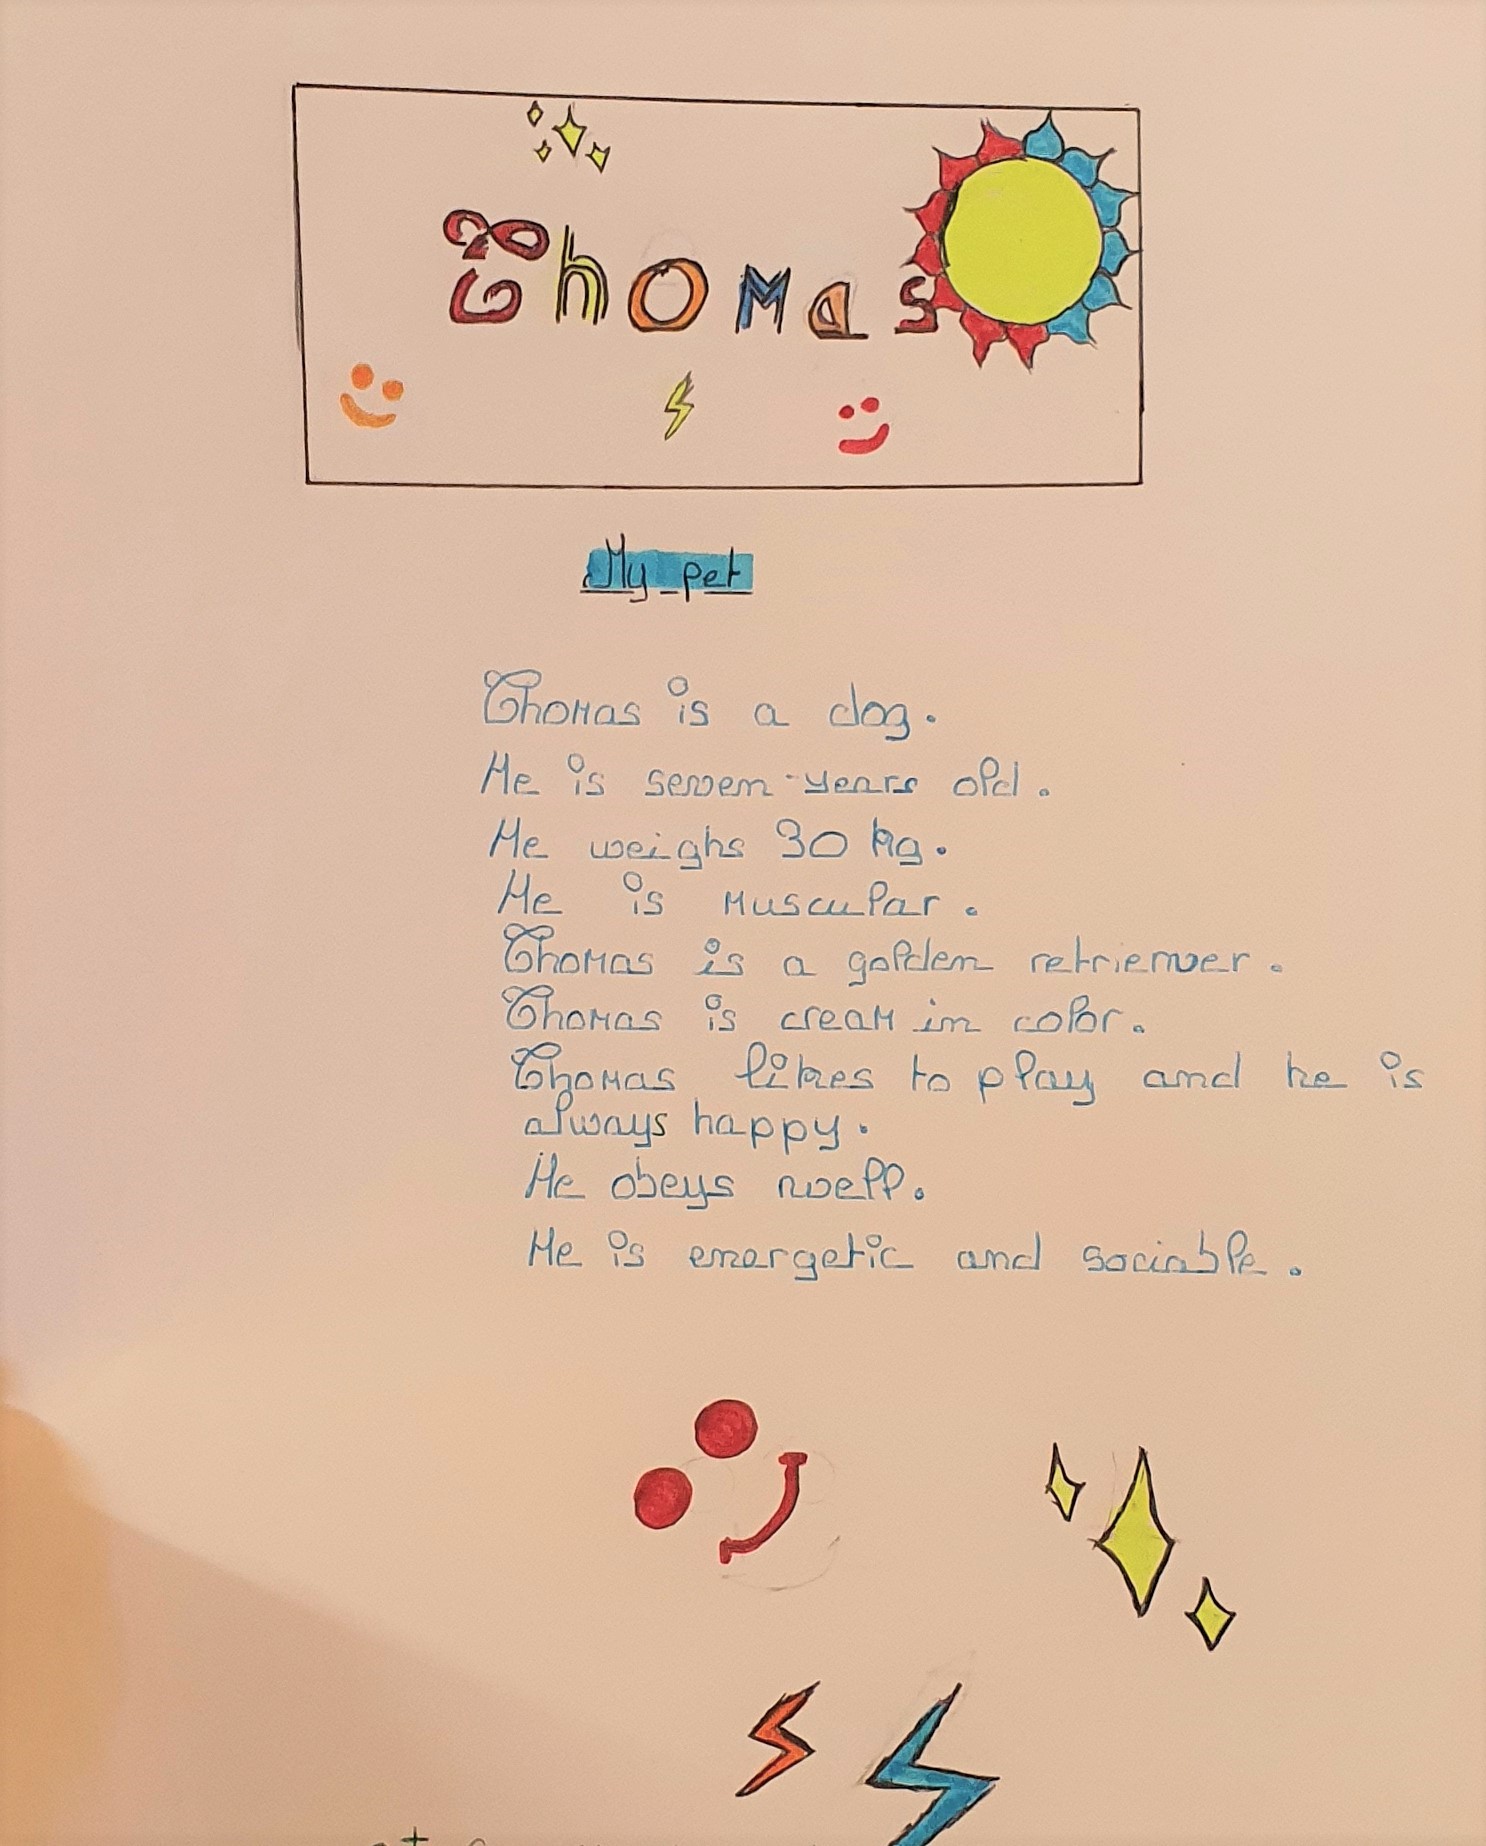 Thomas
My pet
Thomas is a dog.
He is seven-years old.
He weighs 30 kg.
He is muscular.
Thomas is a golden retriever.
Thomas is cream in color.
Thomas likes to play and he is
always happy.
He obeys well.
He is energetic and sociable.